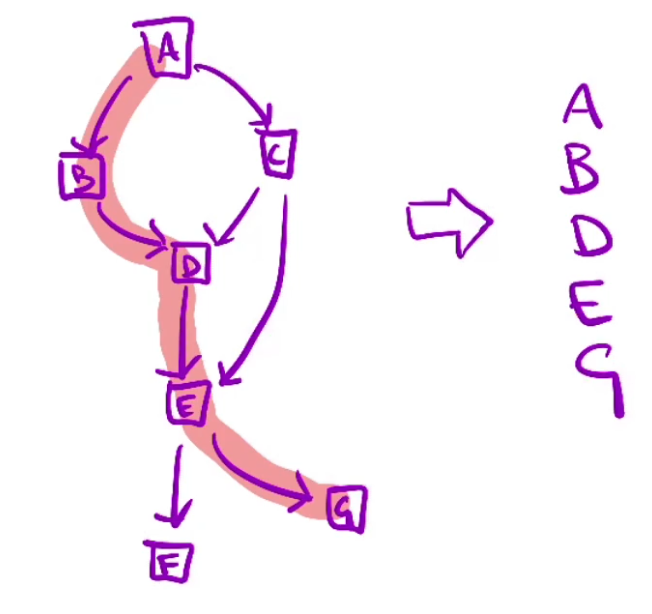 A
B
C
D
E
G
F
A
B
D
E
G